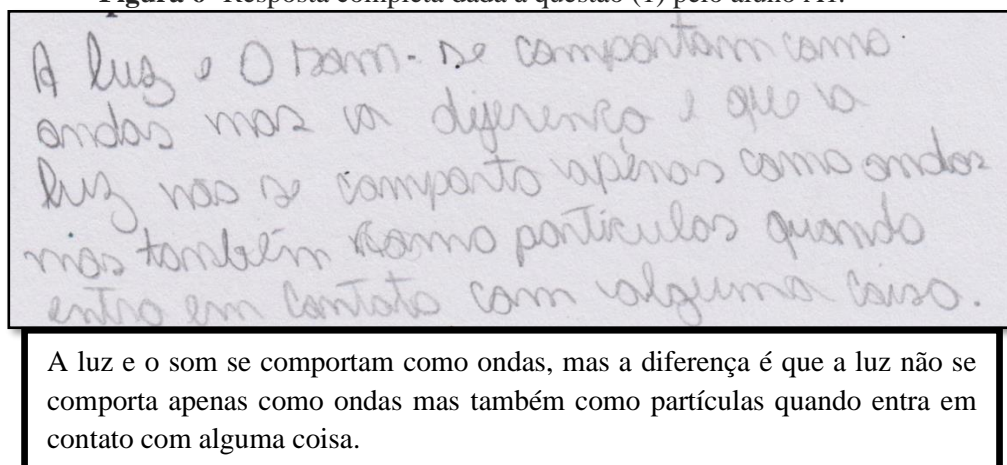 Figura 6- Resposta completa dada à questão (1) pelo aluno A1.
A luz e O som- se comportam como
ondas mas a diferença é que a
luz não se comporta apenas como ondas
mas também como partículas quando
entra em contato com alguma coisa.
A luz e o som se comportam como ondas, mas a diferença é que a luz não se
comporta apenas como ondas mas também como partículas quando entra em
contato com alguma coisa.